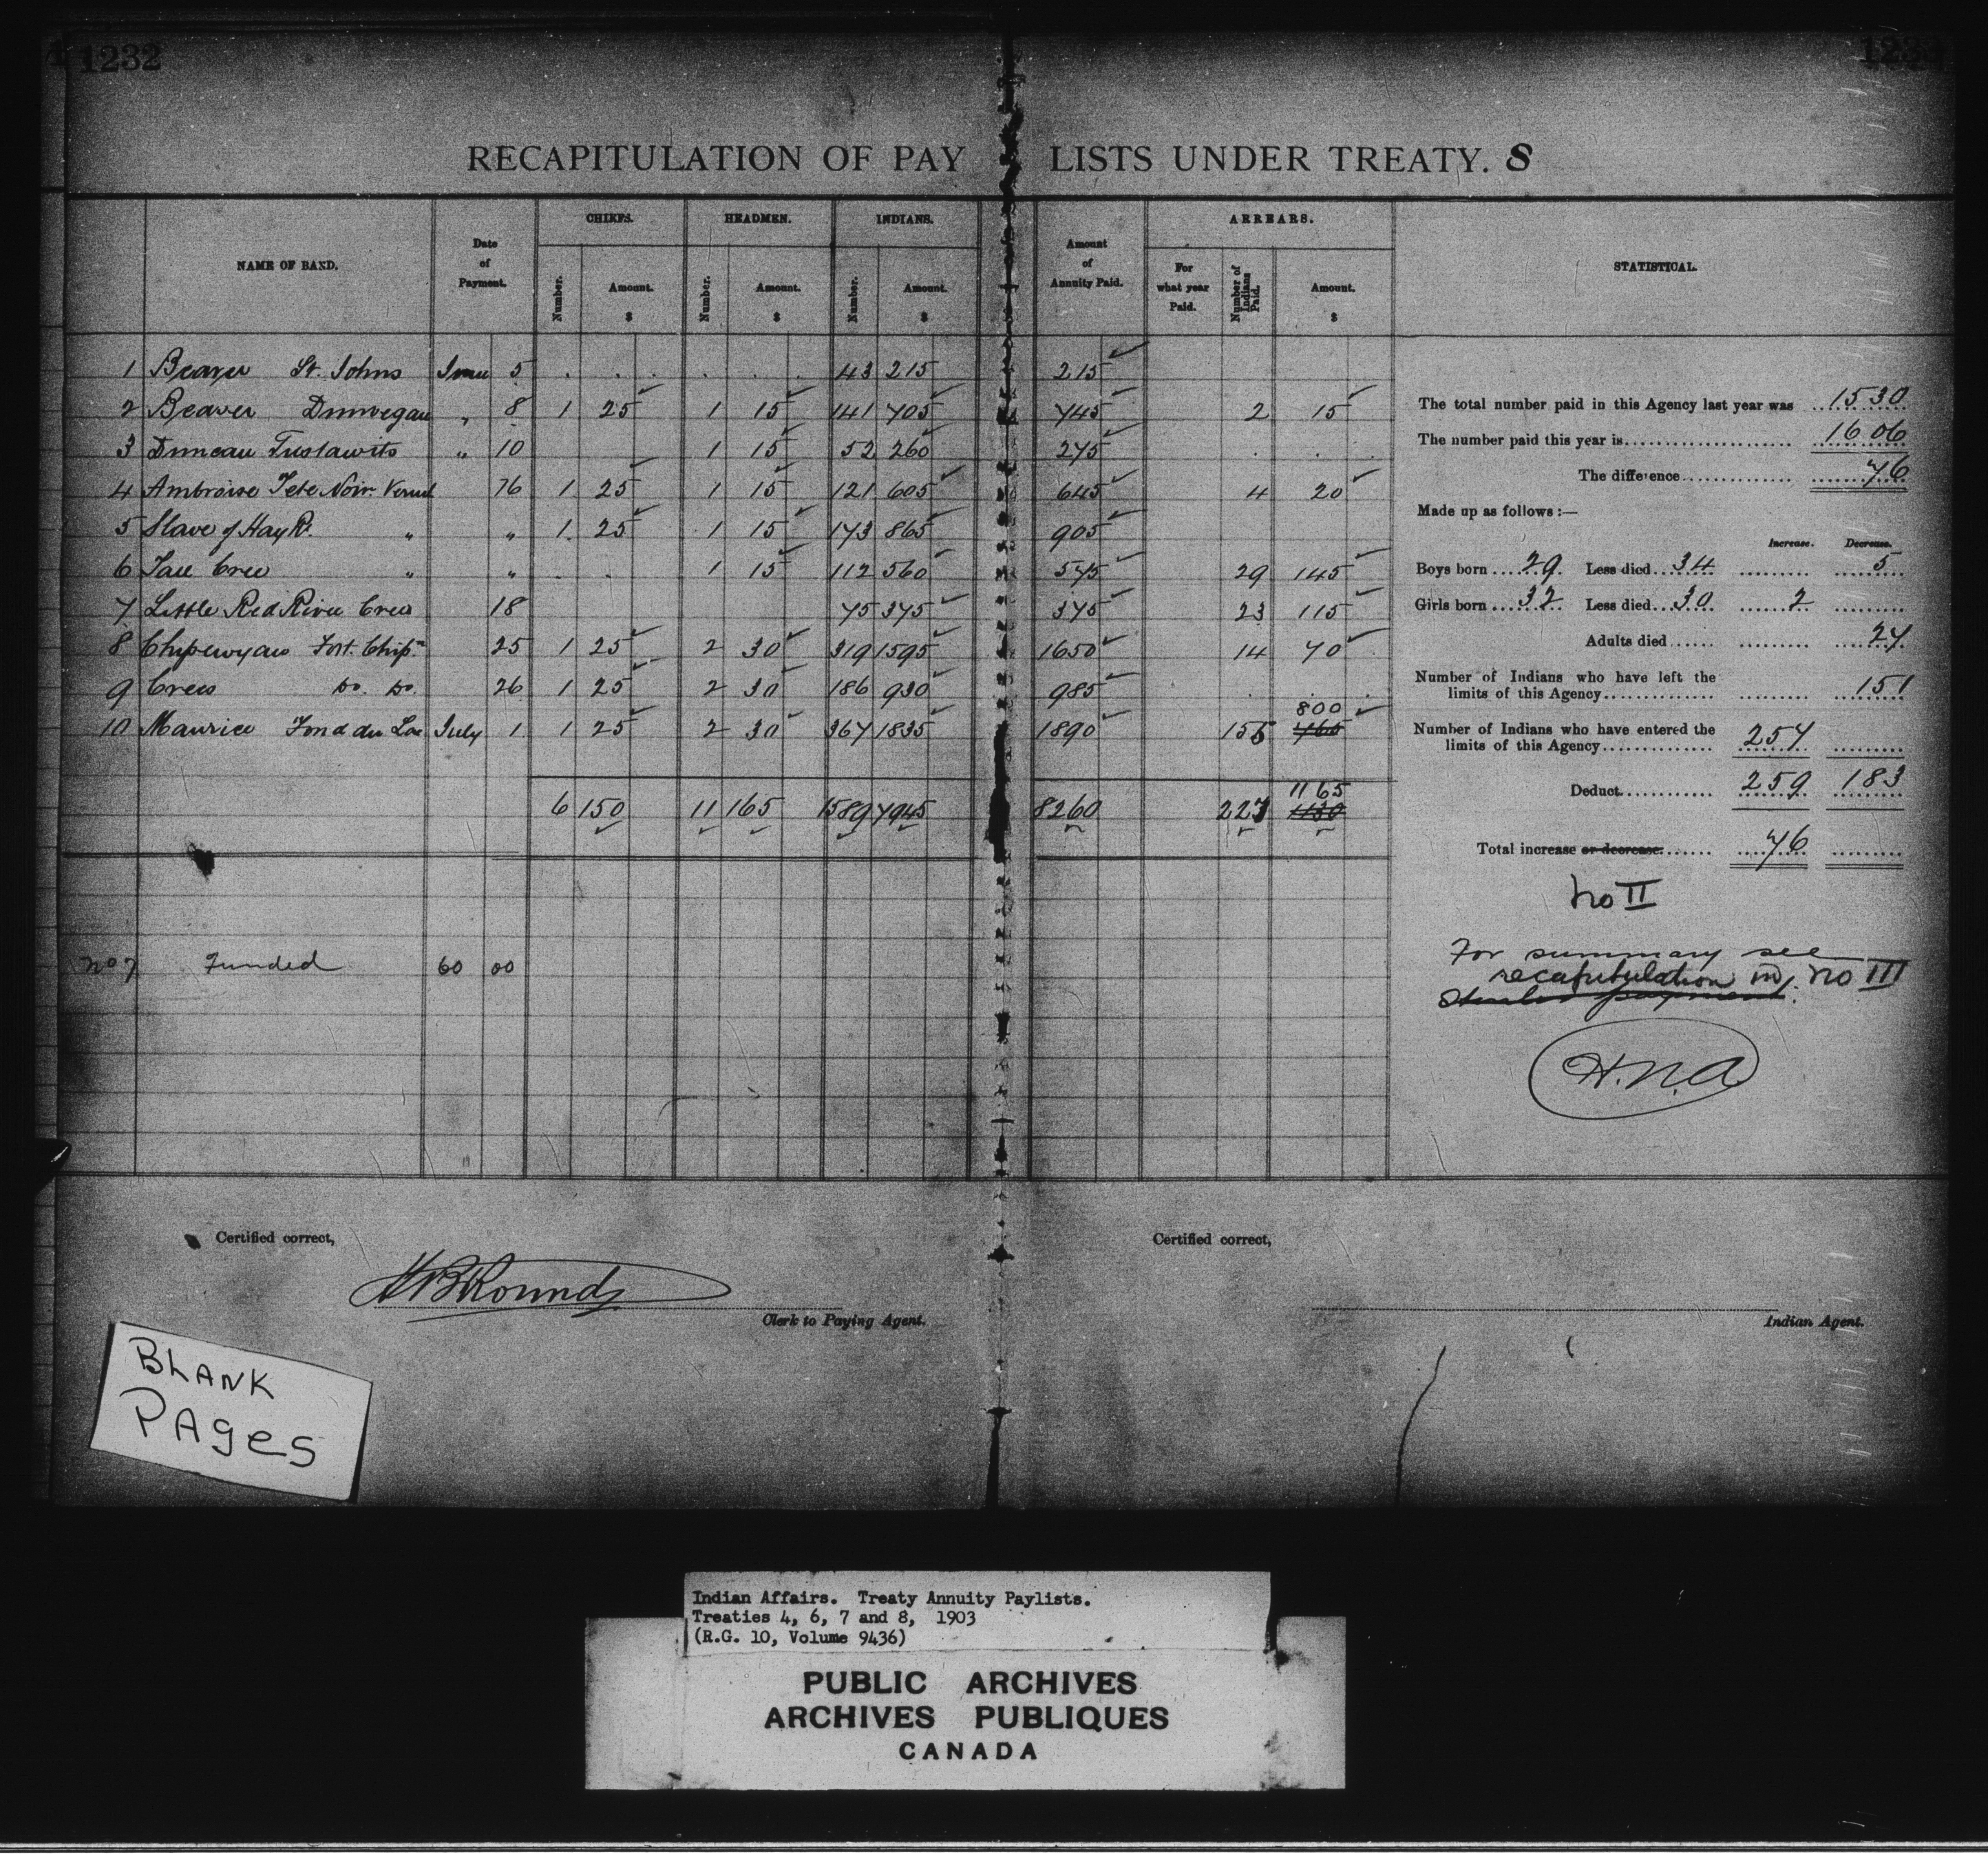 1232
RECAPITULATION OF PAY LISTS UNDER TREATY. 8
NAME OF BAND. Date of Payment. CHIEFS. Number. Amount. $ HEADMEN. Number. Amount. $ INDIANS. Number. Amount. $ Amount of Annuity Paid. ARREARS. For what year Paid. Number of Indians Paid. Amount. $ STATISTICAL.
1 Beaver St. Johns June 5 43 215 215
2 Beaver Dunvegan " 8 1 25 1 15 141 705 745 2 15
3 Duncan Tustawits " 10 1 15 52 260 275
4 Ambroise Tete Noir 16 1 25 1 15 121 605 645 4 20
5 Slave of Hay R. " " 1 25 1 15 173 865 905
6 Cree " " 1 15 112 560 575 29 145
7 Little Red River Crees 18 75 375 375 23 115
8 Chipewyans Fort. Chip. 25 1 25 2 30 319 1595 1650 14 70
9 Crees Do. Do. 26 1 25 2 30 186 930 985
10 Maurice Fond du Lac July 1 1 25 2 30 367 1835 1890 155 765 800
6 150 11 165 1589 7945 8260 227 1130 1165
No 7 Funded 60 00
The total number paid in this Agency last year was 1530
The number paid this year is 1606
The difference 76
Made up as follows:—
Increase. Decrease.
Boys born 29. Less died 34 5
Girls born 32 Less died 30 2
Adults died 27
Number of Indians who have left the
limits of this Agency 151
Number of Indians who have entered the
limits of this Agency 257
Deduct 259 183
Total increase or decrease. 76
No II
For summary see
recapitulation in No III
H.N.A
Certified correct,
Clerk to Paying Agent.
Certified correct,
Indian Agent.
BLANK
PAGES
Indian Affairs. Treaty Annuity Paylists.
Treaties 4, 6, 7 and 8, 1903
(R.G. 10, Volume 9436)
PUBLIC ARCHIVES
ARCHIVES PUBLIQUES
CANADA